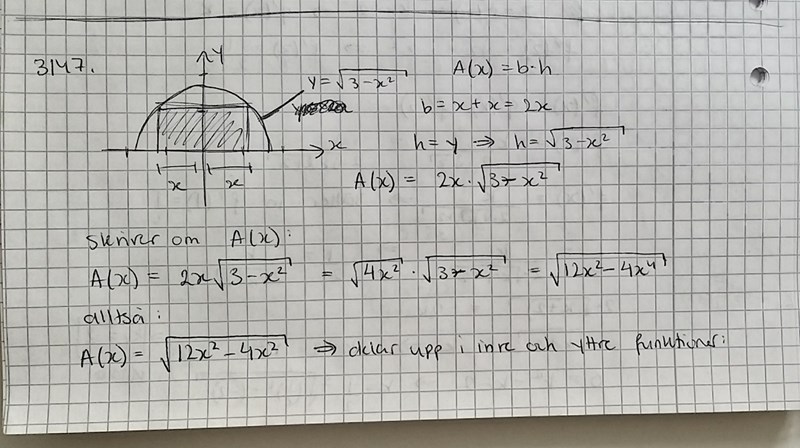 3147.
y
y = √(3-x²)
x
x x
A(x) = b·h
b = x + x = 2x
h = y ⇒ h = √(3-x²)
A(x) = 2x·√(3-x²)
skriver om A(x):
A(x) = 2x√(3-x²) = √(4x²)·√(3-x²) = √(12x²-4x⁴)
alltså:
A(x) = √(12x²-4x²) ⇒ delar upp i inre och yttre funktioner: